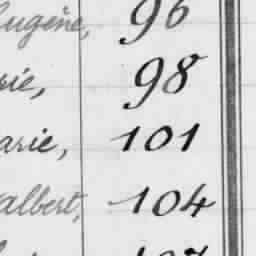 Eugène, 96
rie, 98
arie, 101
albert, 104